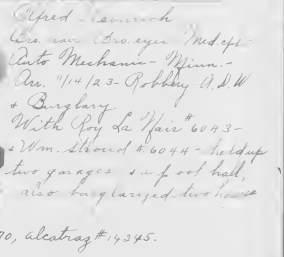 Alfred
Bro. eyes Med. cpl-
Auto Mechanic - Minn.-
Arr. 11/14/23 - Robbery A.D.W
& Burglary.
With Roy La Nair #6043-
& Wm. Stroud #6044 - held up
two garages & a pool hall,
also burglarized two
70, alcatraz #14245.